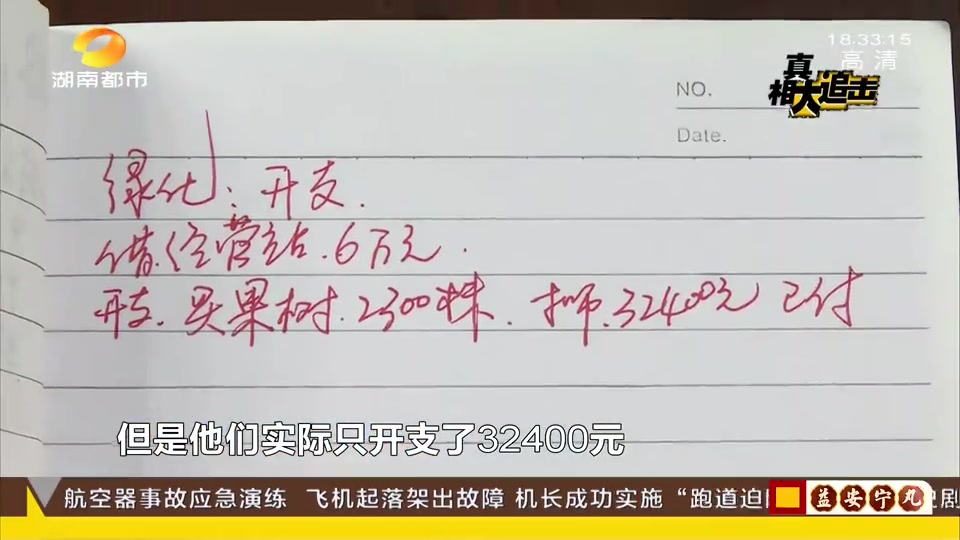 湖南都市
18:33:15
高清
真相大追击
NO.
Date.
绿化:开支.
借经营站.6万元.
开支.买果树.2300株.币.32400元 已付
但是他们实际只开支了32400元
航空器事故应急演练 飞机起落架出故障 机长成功实施“跑道迫
益安宁丸
剧